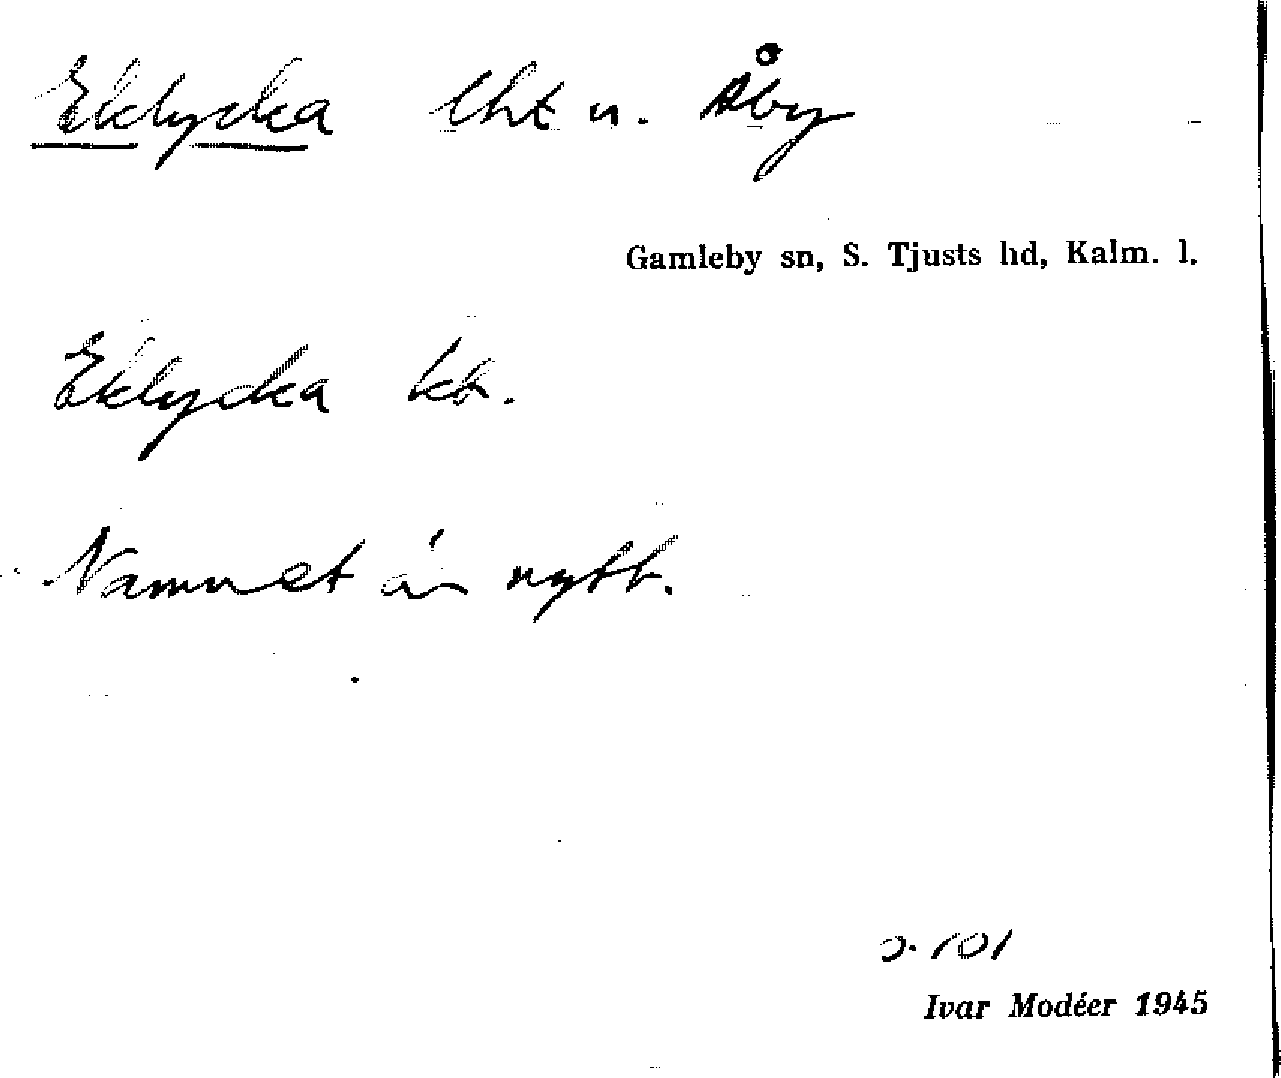 Eklycka lht u. Åby
Gamleby sn, S. Tjusts hd, Kalm. l.
Eklycka kt.
Namnet är nytt.
o. 101
Ivar Modéer 1945